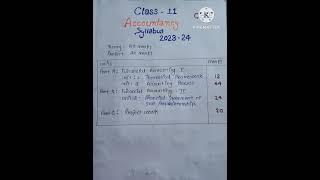 Class - 11
Accountancy
Syllabus
2023-24
Theory: 80 marks
Project: 20 marks
Units
marks
Part A: Financial Accounting - I
Unit 1: Theoretical Framework 12
Unit 2: Accounting Process 44
Part B: Financial Accounting - II
Unit 3: Financial Statement of
Sole Proprietorship 24
Part C: Project work 20